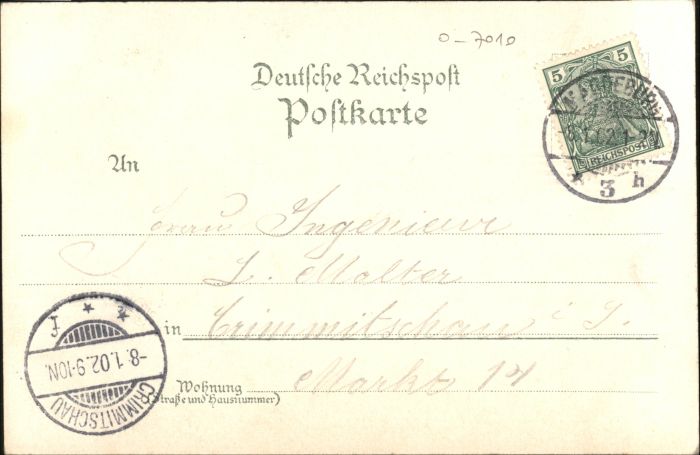 0-7010
5 5
REICHSPOST
MAGDEBURG
3 h
Deutsche Reichspost
Postkarte
An
Frau Ingenieur
L. Molter
in Crimmitschau i. S.
Wohnung Markt 14
(Straße und Hausnummer)
CRIMMITSCHAU
-8.1.02.9-10N.